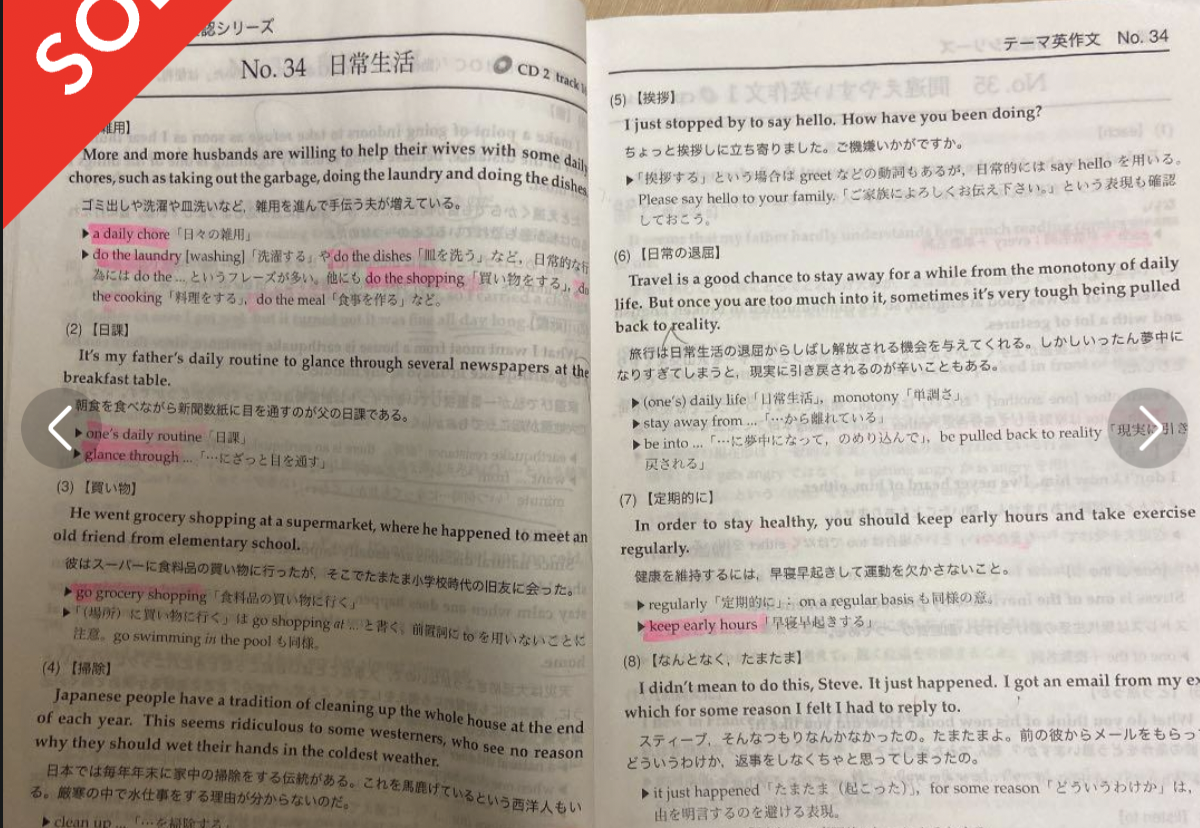 SO
認シリーズ
No. 34 日常生活
CD 2 track
雑用】
More and more husbands are willing to help their wives with some daily
chores, such as taking out the garbage, doing the laundry and doing the dishes
ゴミ出しや洗濯や皿洗いなど，雑用を進んで手伝う夫が増えている。
▶a daily chore「日々の雑用」
▶do the laundry [washing]「洗濯する」や do the dishes「皿を洗う」など，日常的な行
為には do the ... というフレーズが多い。他にも do the shopping「買い物をする」，do
the cooking「料理をする」，do the meal「食事を作る」など。
(2)【日課】
It's my father's daily routine to glance through several newspapers at the
breakfast table.
朝食を食べながら新聞数紙に目を通すのが父の日課である。
▶one's daily routine「日課」
▶glance through ...「…にざっと目を通す」
(3)【買い物】
He went grocery shopping at a supermarket, where he happened to meet an
old friend from elementary school.
彼はスーパーに食料品の買い物に行ったが，そこでたまたま小学校時代の旧友に会った。
▶go grocery shopping「食料品の買い物に行く」
▶「(場所) に買い物に行く」は go shopping at ... と書く，前置詞に to を用いないことに
注意。go swimming in the pool も同様。
(4)【掃除】
Japanese people have a tradition of cleaning up the whole house at the end
of each year. This seems ridiculous to some westerners, who see no reason
why they should wet their hands in the coldest weather.
日本では毎年年末に家中の掃除をする伝統がある。これを馬鹿げているという西洋人もい
る。厳寒の中で水仕事をする理由が分からないのだ。
▶clean up ...「…を掃除する
テーマ英作文 No. 34
(5)【挨拶】
I just stopped by to say hello. How have you been doing?
ちょっと挨拶しに立ち寄りました。ご機嫌いかがですか。
▶「挨拶する」という場合は greet などの動詞もあるが，日常的には say hello を用いる。
Please say hello to your family.「ご家族によろしくお伝え下さい。」という表現も確認
しておこう。
(6)【日常の退屈】
Travel is a good chance to stay away for a while from the monotony of daily
life. But once you are too much into it, sometimes it's very tough being pulled
back to reality.
旅行は日常生活の退屈からしばし解放される機会を与えてくれる。しかしいったん夢中に
なりすぎてしまうと，現実に引き戻されるのが辛いこともある。
▶(one's) daily life「日常生活」，monotony「単調さ」
▶stay away from ...「…から離れている」
▶be into ...「…に夢中になって，のめり込んで」，be pulled back to reality「現実に引き
戻される」
(7)【定期的に】
In order to stay healthy, you should keep early hours and take exercise
regularly.
健康を維持するには，早寝早起きして運動を欠かさないこと。
▶regularly「定期的に」；on a regular basis も同様の意。
▶keep early hours「早寝早起きする」
(8)【なんとなく，たまたま】
I didn't mean to do this, Steve. It just happened. I got an email from my ex
which for some reason I felt I had to reply to.
スティーブ，そんなつもりなんかなかったの。たまたまよ。前の彼からメールをもらっ
どういうわけか，返事をしなくちゃと思ってしまったの。
▶it just happened「たまたま（起こった）」，for some reason「どういうわけか」は，
由を明言するのを避ける表現。